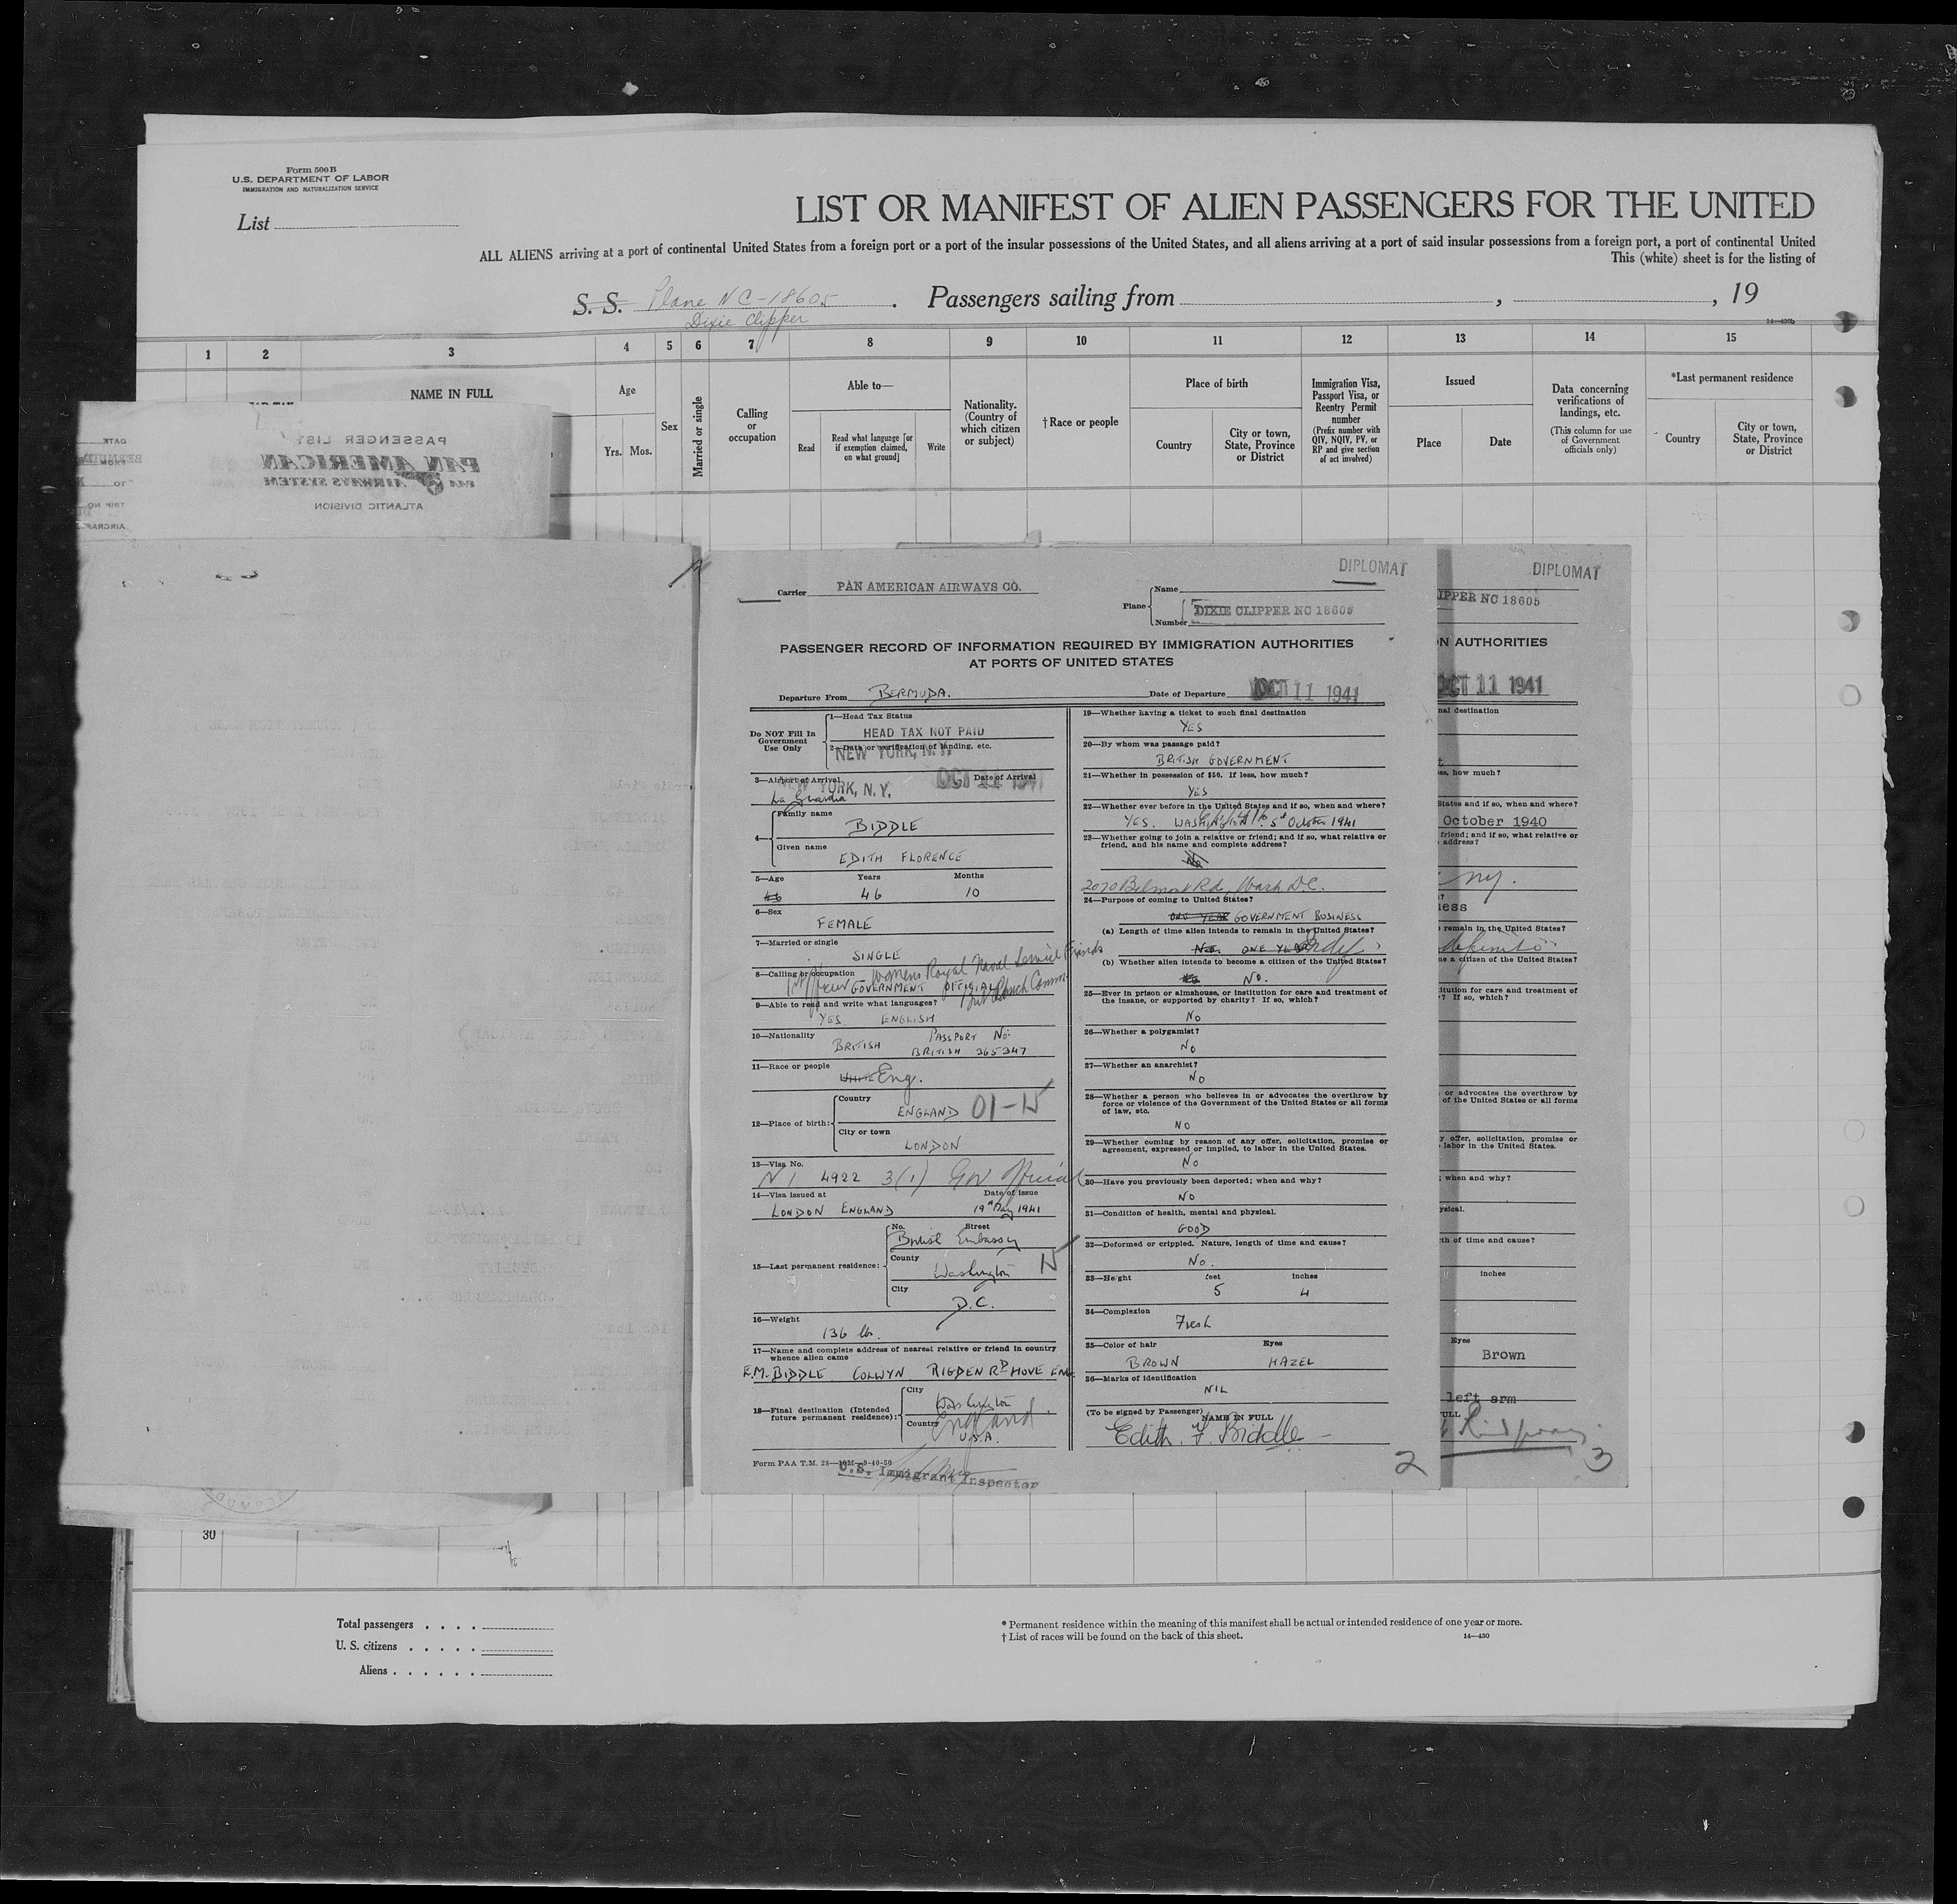 Form 500 B
U.S. DEPARTMENT OF LABOR
IMMIGRATION AND NATURALIZATION SERVICE
List
LIST OR MANIFEST OF ALIEN PASSENGERS FOR THE UNITED
ALL ALIENS arriving at a port of continental United States from a foreign port or a port of the insular possessions of the United States, and all aliens arriving at a port of said insular possessions from a foreign port, a port of continental United
This (white) sheet is for the listing of
S. S. Plane NC-18605 . Passengers sailing from , , 19
Dixie Clipper
14—430b
1 2 3 4 5 6 7 8 9 10 11 12 13 14 15
NAME IN FULL
Age
Yrs. Mos.
Sex
Married or single
Calling or occupation
Able to—
Read
Read what language [or if exemption claimed, on what ground]
Write
Nationality. (Country of which citizen or subject)
†Race or people
Place of birth
Country
City or town, State, Province or District
Immigration Visa, Passport Visa, or Reentry Permit number
(Prefix number with QIV, NQIV, PV, or RP and give section of act involved)
Issued
Place
Date
Data concerning verifications of landings, etc.
(This column for use of Government officials only)
*Last permanent residence
Country
City or town, State, Province or District
PASSENGER LIST
PAN AMERICAN
PAN AMERICAN AIRWAYS SYSTEM
ATLANTIC DIVISION
DATE
FROM BERMUDA
TO
TRIP NO.
AIRCRAFT
DIPLOMAT
Carrier PAN AMERICAN AIRWAYS CO.
Plane Name
Number DIXIE CLIPPER NC 18605
PASSENGER RECORD OF INFORMATION REQUIRED BY IMMIGRATION AUTHORITIES
AT PORTS OF UNITED STATES
Departure From BERMUDA. Date of Departure OCT 11 1941
Do NOT Fill In Government Use Only
1—Head Tax Status
HEAD TAX NOT PAID
2—Data or verification of landing, etc.
NEW YORK, N.Y.
3—Airport of Arrival Date of Arrival
NEW YORK, N.Y. OCT 11 1941
La Guardia
4— Family name
BIDDLE
Given name
EDITH FLORENCE
5—Age Years Months
46 46 10
6—Sex
FEMALE
7—Married or single
SINGLE
8—Calling or occupation Womens Royal Naval Service
1st Officer GOVERNMENT OFFICIAL
9—Able to read and write what languages?
YES. ENGLISH
10—Nationality PASSPORT No:
BRITISH BRITISH 365947
11—Race or people
WHITE Eng.
12—Place of birth:
Country
ENGLAND 01-15
City or town
LONDON
13—Visa No.
4922 3(1) Gov Official
14—Visa issued at Date of issue
LONDON ENGLAND 19th May 1941
15—Last permanent residence:
No. Street
British Embassy
County
Washington
City
D.C.
16—Weight
136 lb.
17—Name and complete address of nearest relative or friend in country whence alien came
E.M. BIDDLE COLWYN RIGDEN RD HOVE ENG.
18—Final destination (Intended future permanent residence):
City
Washington
Country England.
U.S.A.
Form PAA T.M. 28—10M—9-40-50
U.S. Immigrant Inspector
19—Whether having a ticket to such final destination
YES
20—By whom was passage paid?
BRITISH GOVERNMENT
21—Whether in possession of $50. If less, how much?
YES
22—Whether ever before in the United States and if so, when and where?
YES. WASHINGTON 5th October 1941
23—Whether going to join a relative or friend; and if so, what relative or friend, and his name and complete address?
No
2070 Belmont Rd, Wash D.C.
24—Purpose of coming to United States?
ONE YEAR GOVERNMENT BUSINESS
(a) Length of time alien intends to remain in the United States?
No. ONE YEAR Indef
(b) Whether alien intends to become a citizen of the United States?
No.
25—Ever in prison or almshouse, or institution for care and treatment of the insane, or supported by charity? If so, which?
No
26—Whether a polygamist?
No
27—Whether an anarchist?
No
28—Whether a person who believes in or advocates the overthrow by force or violence of the Government of the United States or all forms of law, etc.
NO
29—Whether coming by reason of any offer, solicitation, promise or agreement, expressed or implied, to labor in the United States.
No
30—Have you previously been deported; when and why?
NO
31—Condition of health, mental and physical.
GOOD
32—Deformed or crippled. Nature, length of time and cause?
No.
33—Height feet inches
5 4
34—Complexion
Fresh
35—Color of hair Eyes
BROWN HAZEL
36—Marks of identification
NIL
(To be signed by Passenger) NAME IN FULL
Edith. F. Biddle
2
DIPLOMAT
IPPER NC 18605
N AUTHORITIES
OCT 11 1941
nal destination
ss, how much?
States and if so, when and where?
October 1940
friend; and if so, what relative or
address?
NY.
ness
remain in the United States?
Indefinite
me a citizen of the United States?
itution for care and treatment of
? If so, which?
or advocates the overthrow by
of the United States or all forms
y offer, solicitation, promise or
labor in the United States.
; when and why?
ysical.
th of time and cause?
inches
Eyes
Brown
left arm
ULL
3
30
Total passengers
U. S. citizens
Aliens
* Permanent residence within the meaning of this manifest shall be actual or intended residence of one year or more.
† List of races will be found on the back of this sheet.
14—430